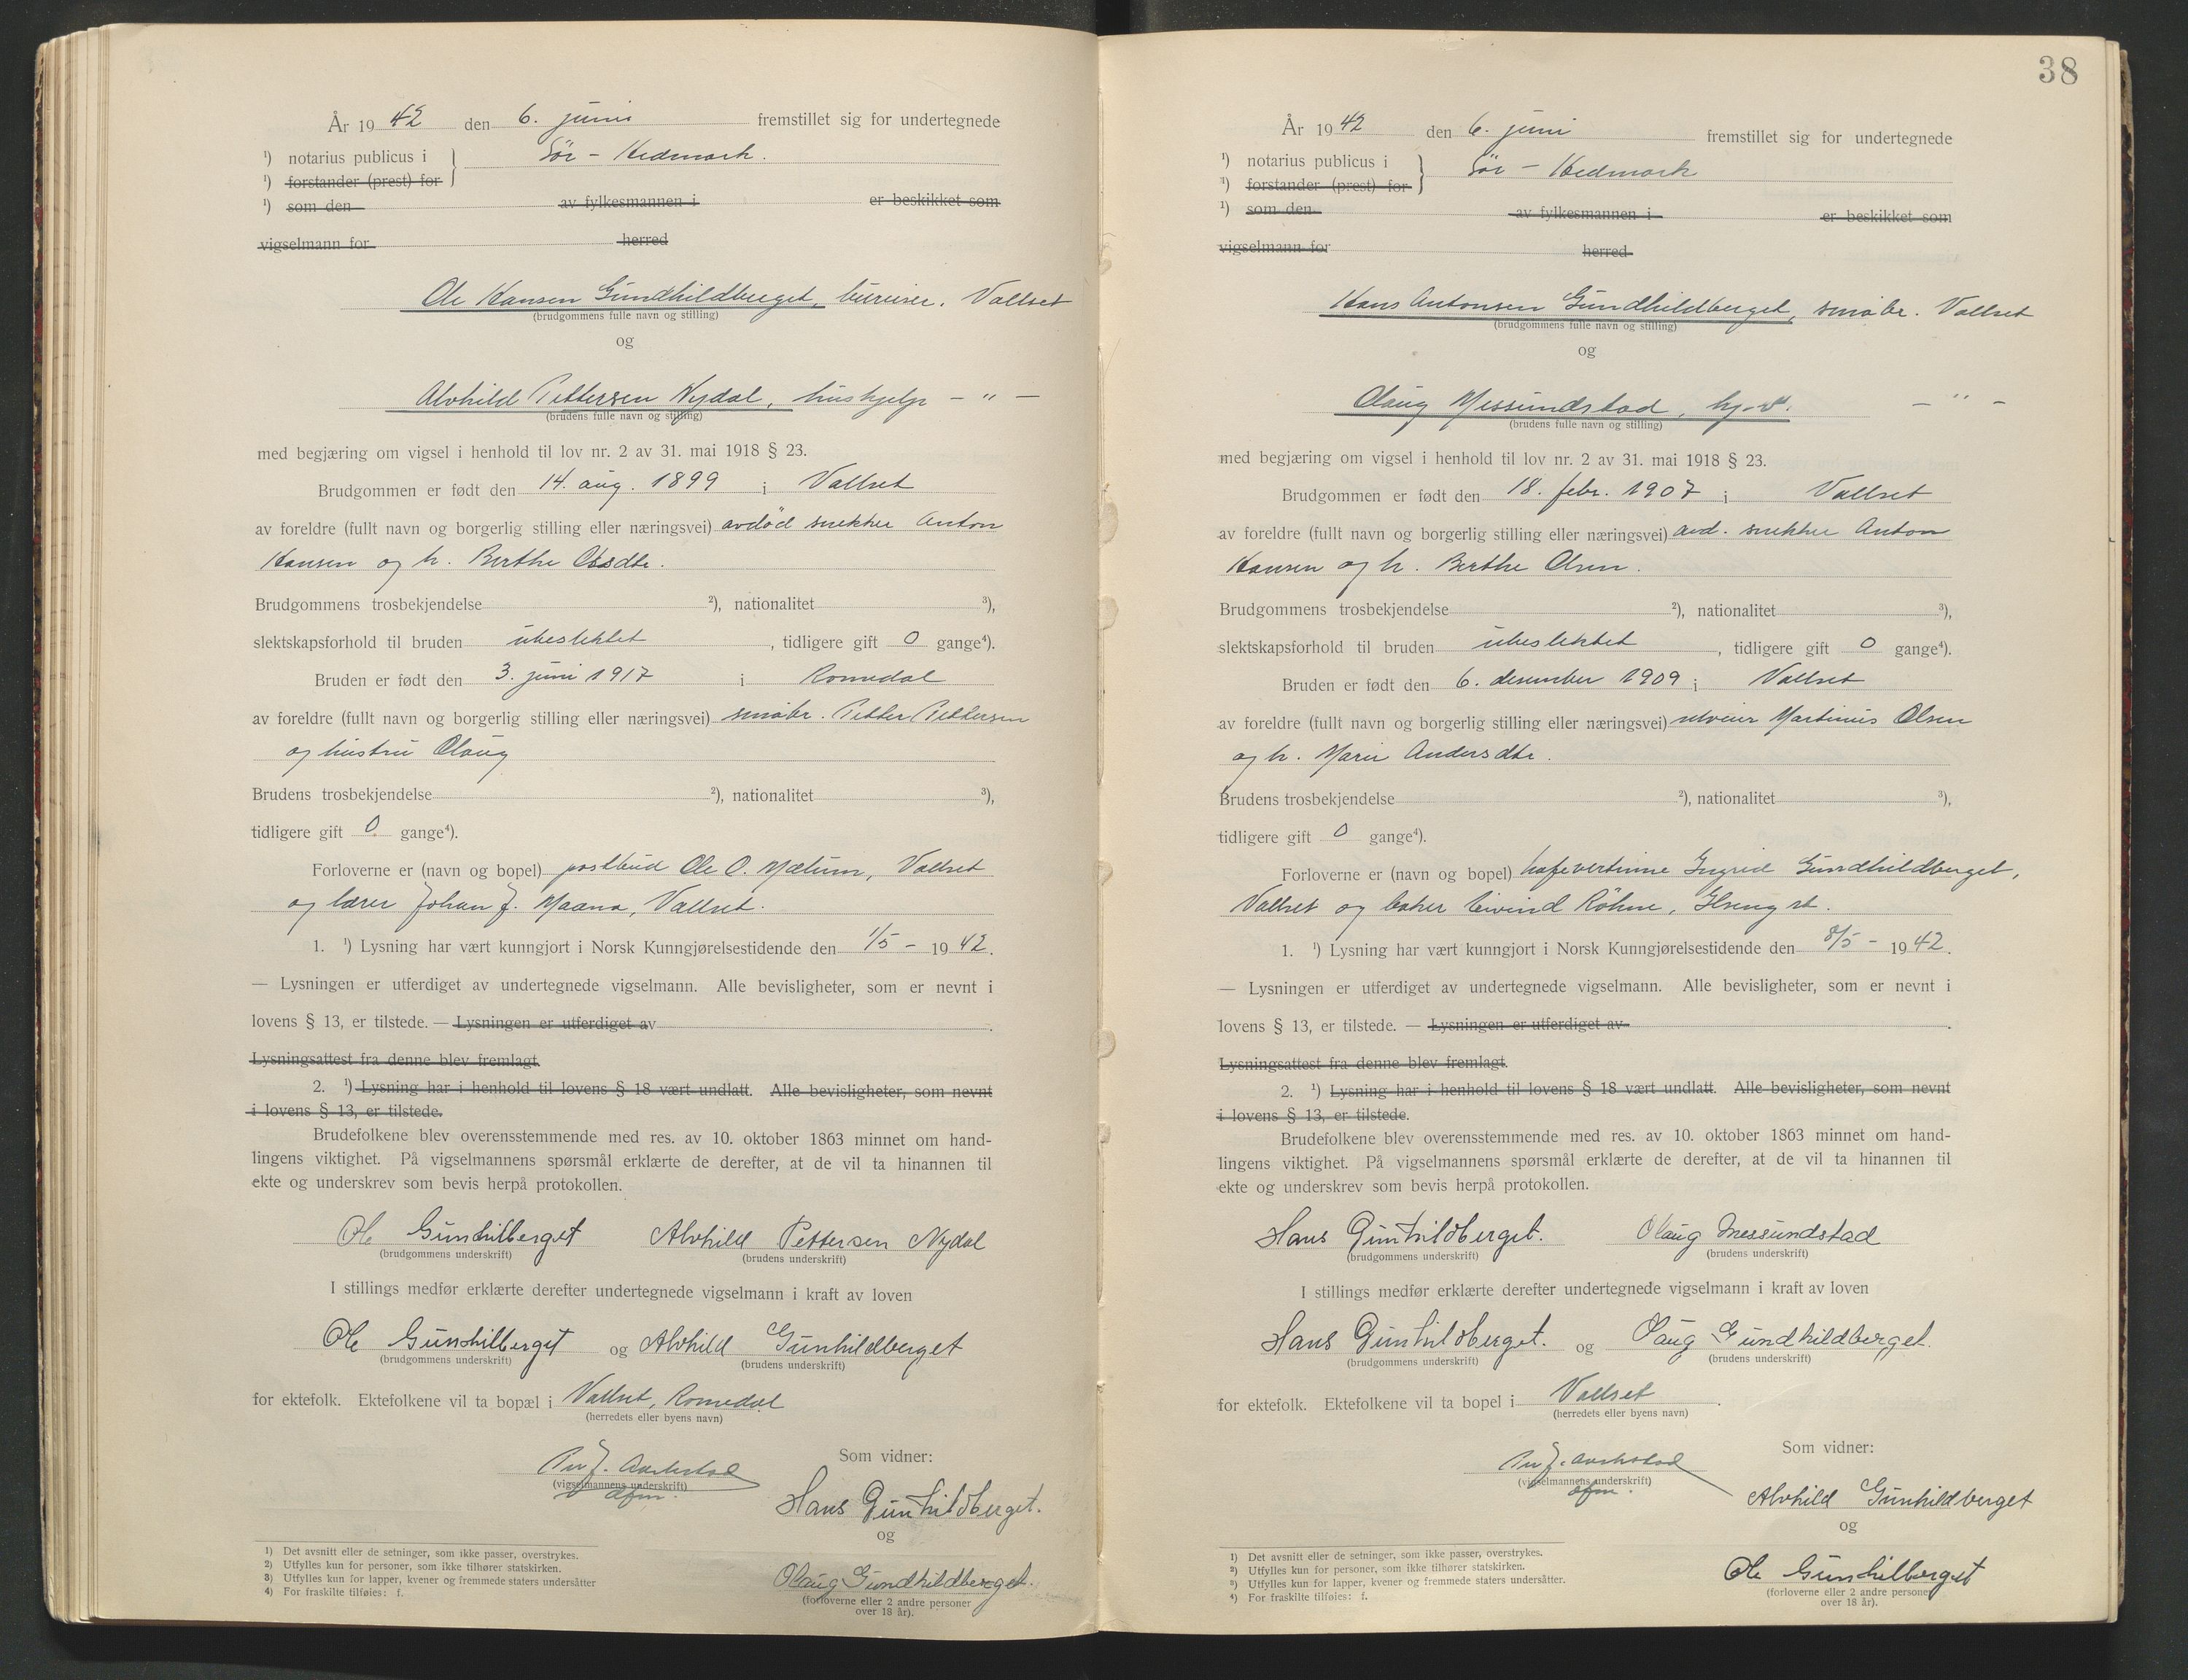 År 1942 den 6. juni fremstillet sig for undertegnede
¹) notarius publicus i } Sör - Hedmark.
¹) forstander (prest) for
¹) som den av fylkesmannen i er beskikket som
vigselmann for herred
Ole Hansen Gundhildberget, bureiser. Vallset
(brudgommens fulle navn og stilling)
og
Alvhild Pettersen Nydal, hushjelp - " -
(brudens fulle navn og stilling)
med begjæring om vigsel i henhold til lov nr. 2 av 31. mai 1918 § 23.
Brudgommen er født den 14. aug. 1899 i Vallset
av foreldre (fullt navn og borgerlig stilling eller næringsvei) avdød snekker Anton
Hansen og h. Berthe Olsdtr.
Brudgommens trosbekjendelse ²), nationalitet ³),
slektskapsforhold til bruden ubeslektet, tidligere gift 0 gange⁴).
Bruden er født den 3. juni 1917 i Romedal
av foreldre (fullt navn og borgerlig stilling eller næringsvei) småbr. Petter Pettersen
og hustru Olaug
Brudens trosbekjendelse ²), nationalitet ³),
tidligere gift 0 gange⁴).
Forloverne er (navn og bopel) postbud Ole O. Mælum, Vallset
og lærer Johan J. Maana, Vallset.
1. ¹) Lysning har vært kunngjort i Norsk Kunngjørelsestidende den 1/5 - 1942.
— Lysningen er utferdiget av undertegnede vigselmann. Alle bevisligheter, som er nevnt i
lovens § 13, er tilstede. — Lysningen er utferdiget av .
Lysningsattest fra denne blev fremlagt.
2. ¹) Lysning har i henhold til lovens § 18 vært undlatt. Alle bevisligheter, som nevnt
i lovens § 13, er tilstede.
Brudefolkene blev overensstemmende med res. av 10. oktober 1863 minnet om hand-
lingens viktighet. På vigselmannens spørsmål erklærte de derefter, at de vil ta hinannen til
ekte og underskrev som bevis herpå protokollen.
Ole Gunhilberget Alvhild Pettersen Nydal
(brudgommens underskrift) (brudens underskrift)
I stillings medfør erklærte derefter undertegnede vigselmann i kraft av loven
Ole Gunhilberget og Alvhild Gunhildberget
(brudgommens underskrift) (brudens underskrift)
for ektefolk. Ektefolkene vil ta bopæl i Vallset, Romedal
(herredets eller byens navn)
Per J. Aarkstad
(vigselmannens underskrift)
dfm.
Som vidner:
Hans Gunhildberget.
og
Olaug Gundhildberget.
(forloverne eller 2 andre personer
over 18 år).
1) Det avsnitt eller de setninger, som ikke passer, overstrykes.
2) Utfylles kun for personer, som ikke tilhører statskirken.
3) Utfylles kun for lapper, kvener og fremmede staters undersåtter
4) For fraskilte tilføies: f.
38
År 1942 den 6. juni fremstillet sig for undertegnede
¹) notarius publicus i } Sör - Hedmark
¹) forstander (prest) for
¹) som den av fylkesmannen i er beskikket som
vigselmann for herred
Hans Antonsen Gundhildberget, småbr. Vallset
(brudgommens fulle navn og stilling)
og
Olaug Messundstad, hj.v. - " -
(brudens fulle navn og stilling)
med begjæring om vigsel i henhold til lov nr. 2 av 31. mai 1918 § 23.
Brudgommen er født den 18. febr. 1907 i Vallset
av foreldre (fullt navn og borgerlig stilling eller næringsvei) avd. snekker Anton
Hansen og h. Berthe Olsen.
Brudgommens trosbekjendelse ²), nationalitet ³),
slektskapsforhold til bruden ubeslektet, tidligere gift 0 gange⁴).
Bruden er født den 6. desember 1909 i Vallset
av foreldre (fullt navn og borgerlig stilling eller næringsvei) Martinus Olsen
og h. Marie Andersdtr.
Brudens trosbekjendelse ²), nationalitet ³),
tidligere gift 0 gange⁴).
Forloverne er (navn og bopel) kafevertinne Ingrid Gundhildberget,
Vallset og baker Eivind Röhne, Ilseng st.
1. ¹) Lysning har vært kunngjort i Norsk Kunngjørelsestidende den 8/5 - 1942.
— Lysningen er utferdiget av undertegnede vigselmann. Alle bevisligheter, som er nevnt i
lovens § 13, er tilstede. — Lysningen er utferdiget av .
Lysningsattest fra denne blev fremlagt.
2. ¹) Lysning har i henhold til lovens § 18 vært undlatt. Alle bevisligheter, som nevnt
i lovens § 13, er tilstede.
Brudefolkene blev overensstemmende med res. av 10. oktober 1863 minnet om hand-
lingens viktighet. På vigselmannens spørsmål erklærte de derefter, at de vil ta hinannen til
ekte og underskrev som bevis herpå protokollen.
Hans Gunhildberget. Olaug Messundstad
(brudgommens underskrift) (brudens underskrift)
I stillings medfør erklærte derefter undertegnede vigselmann i kraft av loven
Hans Gunhildberget. og Olaug Gundhildberget.
(brudgommens underskrift) (brudens underskrift)
for ektefolk. Ektefolkene vil ta bopel i Vallset.
(herredets eller byens navn)
Per J. Aarkstad
(vigselmannens underskrift)
dfm.
Som vidner:
Alvhild Gunhildberget
og
Ole Gunhilberget
(forloverne eller 2 andre personer
over 18 år).
1) Det avsnitt eller de setninger, som ikke passer, overstrykes.
2) Utfylles kun for personer, som ikke tilhører statskirken.
3) Utfylles kun for lapper, kvener og fremmede staters undersåtter.
4) For fraskilte tilføies: f.